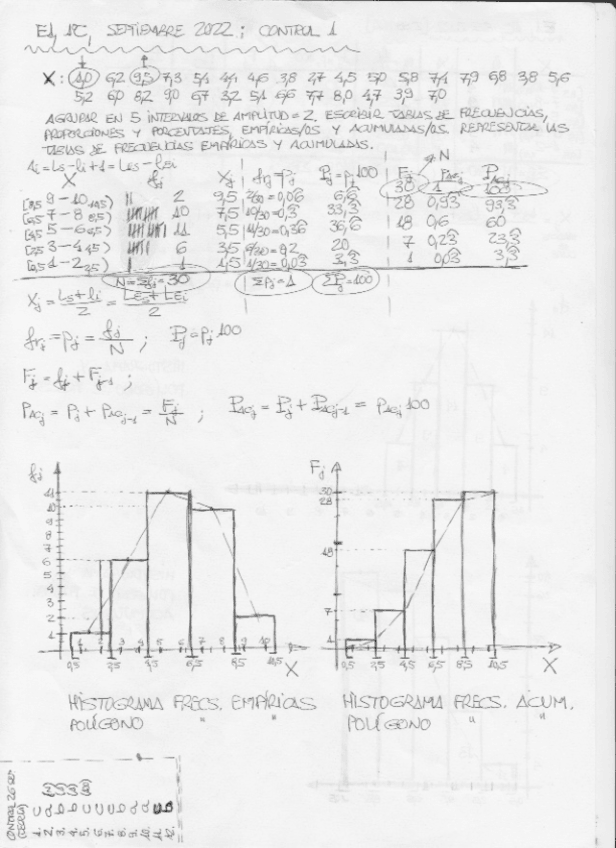 E1, 1ºC, SEPTIEMBRE 2022; CONTROL 1
X: 1,0 6,2 9,5 7,3 5,1 4,1 4,6 3,8 2,7 4,5 5,0 5,8 7,1 7,9 6,8 3,8 5,6
5,2 6,0 8,2 9,0 6,7 3,2 5,1 6,6 7,7 8,0 4,7 3,9 7,0
AGRUPAR EN 5 INTERVALOS DE AMPLITUD = 2. ESCRIBIR TABLAS DE FRECUENCIAS,
PROPORCIONES Y PORCENTAJES, EMPÍRICAS/OS Y ACUMULADAS/OS. REPRESENTAR LAS
TABLAS DE FRECUENCIAS EMPÍRICAS Y ACUMULADAS.
Ai = Ls - Li + 1 = LEs - LEi
N
X fj Xj frj = pj Pj = pj·100 Fj pACj PACj
[8,5 9-10 10,5) 2 9,5 2/30 = 0,06 6,6 30 1 100
[6,5 7-8 8,5) 10 7,5 10/30 = 0,3 33,3 28 0,93 93,3
[4,5 5-6 6,5) 11 5,5 11/30 = 0,36 36,6 18 0,6 60
[2,5 3-4 4,5) 6 3,5 6/30 = 0,2 20 7 0,23 23,3
[0,5 1-2 2,5) 1 1,5 1/30 = 0,03 3,3 1 0,03 3,3
N = Σfj = 30 Σpj = 1 ΣPj = 100
Xj = Ls + Li / 2 = LEs + LEi / 2
frj = pj = fj / N ; Pj = pj·100
Fj = fj + Fj-1 ;
PACj = Pj + PACj-1 = Fj / N ; PACj = Pj + PACj-1 = PACj·100
fj Fj
11 10 9 8 7 6 5 4 3 2 1
30 28 18 7 1
1 2 3 4 5 6 7 8 9 10
0,5 2,5 4,5 6,5 8,5 10,5 X
0,5 2,5 4,5 6,5 8,5 10,5 X
HISTOGRAMA FRECS. EMPÍRICAS HISTOGRAMA FRECS. ACUM.
POLÍGONO " " POLÍGONO " "
1. 2. 3. 4. 5. 6. 7. 8. 9. 10. 11. 12.